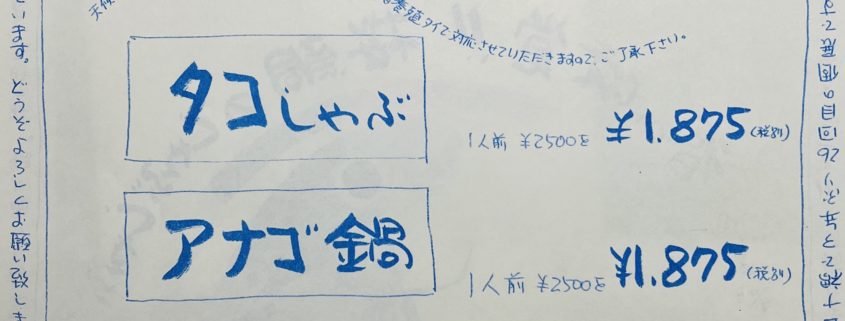 養殖タイで対応させていただきますので、ご了承下さい。
タコしゃぶ
1人前 ¥2500を ¥1.875(税別)
アナゴ鍋
1人前 ¥2500を ¥1.875(税別)
います。どうぞよろしくお願い致しま
で3年ぶり26回目の個展で